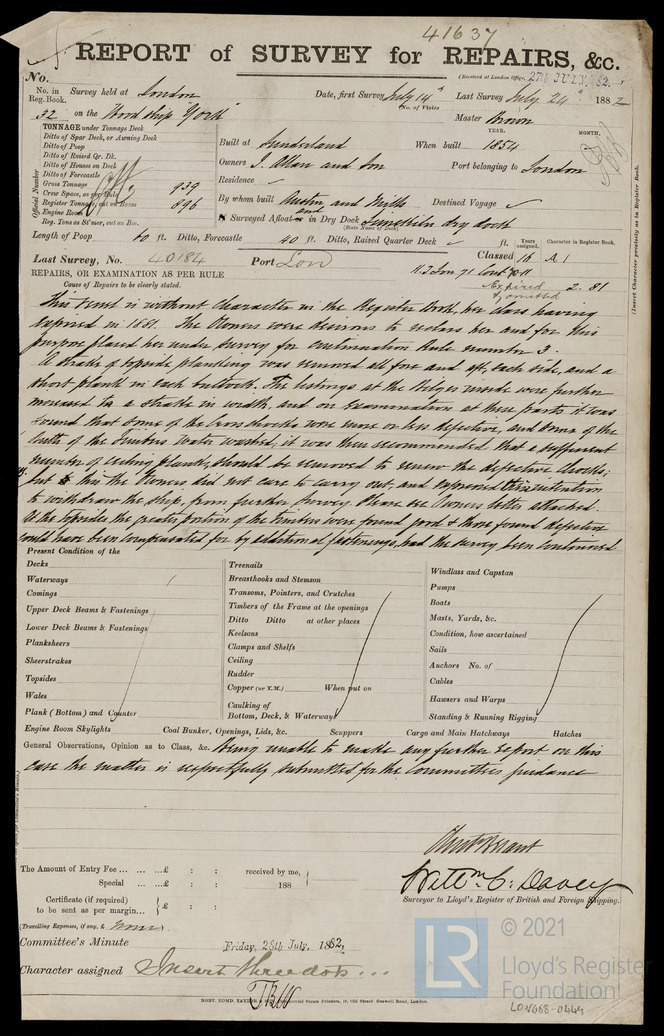 41637
REPORT of SURVEY for REPAIRS, &c.
(Received at London Office, 27th JULY 82.
No.
No. in Reg. Book.
Survey held at London
Date, first Survey July 14th
Last Survey July 24th 1882
No. of Visits
32 on the Wood Ship "York"
Master Brown
TONNAGE under Tonnage Deck
Ditto of Spar Deck, or Awning Deck
Ditto of Poop
Ditto of Raised Qr. Dk.
Ditto of Houses on Deck
Ditto of Forecastle
Gross Tonnage 939
Crew Space, as per Rule
Register Tonnage, cut on Beam 896
Engine Room
Reg. Tons as St'mer, cut on Bm.
Official Number
YEAR. MONTH.
Built at Sunderland When built 1854
Owners J. Allan and Son Port belonging to London
Residence
By whom built Austin and Mills Destined Voyage
If Surveyed Afloat and in Dry Dock Limekiln dry dock
(State Name of Dock)
Length of Poop 60 ft. Ditto, Forecastle 40 ft. Ditto, Raised Quarter Deck ft.
Years assigned.
Character in Register Book.
(Insert Character precisely as in Register Book.
Last Survey, No. 40184 Port Lon
Classed 16 A1
Expired 2.81
& omitted
REPAIRS, OR EXAMINATION AS PER RULE
Cause of Repairs to be clearly stated.
This Vessel is without Character in the Register Book, her class having
expired in 1881. The Owners were desirous to reclass her and for this
purpose placed her under survey for Continuation Rule number 3.
A strake of topside planking was removed all fore and aft, each side, and a
short plank in each buttock. The listings at the bilges inside were further
increased to a strake in width, and on Examination at these parts it was
found that some of the cross chocks were more or less defective, and some of the
butts of the timbers water washed, it was then recommended that a sufficient
number of ceiling planks, should be removed to renew the defective Chocks,
but this the Owners did not care to carry out, and expressed their intention
to withdraw the ship, from further survey. Please see Owners letter attached.
At the topsides the greater portion of the timbers were found good & those found defective
could have been compensated for by additional fastenings, had the survey been Continued
Present Condition of the
Decks
Waterways
Comings
Upper Deck Beams & Fastenings
Lower Deck Beams & Fastenings
Planksheers
Sheerstrakes
Topsides
Wales
Plank (Bottom) and Counter
Treenails
Breasthooks and Stemson
Transoms, Pointers, and Crutches
Timbers of the Frame at the openings
Ditto Ditto at other places
Keelsons
Clamps and Shelfs
Ceiling
Rudder
Copper (or Y.M.) When put on
Caulking of
Bottom, Deck, & Waterways
Windlass and Capstan
Pumps
Boats
Masts, Yards, &c.
Condition, how ascertained
Sails
Anchors No. of
Cables
Hawsers and Warps
Standing & Running Rigging
Engine Room Skylights Coal Bunker, Openings, Lids, &c. Scuppers Cargo and Main Hatchways Hatches
General Observations, Opinion as to Class, &c. Being unable to make any further report on this
case the matter is respectfully submitted for the Committees guidance
The Amount of Entry Fee ... ... ...£ : : received by me,
Special ... ...£ : : 188
Certificate (if required)
to be sent as per margin... £ : :
(Travelling Expenses, if any, £ None).
Willm. C. Davey
Surveyor to Lloyd's Register of British and Foreign Shipping.
Committee's Minute Friday, 28th July, 1882,
Character assigned Insert three dots ...
© 2021
LR
Lloyd's Register
Foundation
LON668-0444